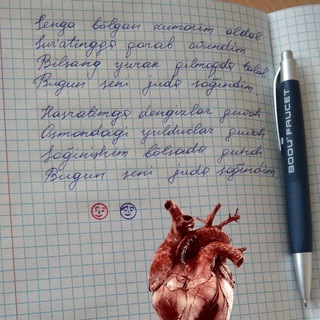 Senga bolgan xumorim oldab
Suratingga qarab ovundim
Bilsang yurak qilmoqda talab
Bugun seni juda sog'indim.
Hasratimga dengizlar guvoh
Osmondagi yulduzlar guvoh
Sog'inishim bo'lsada gunoh
Bugun seni juda sog'indim
BODU FAUCET